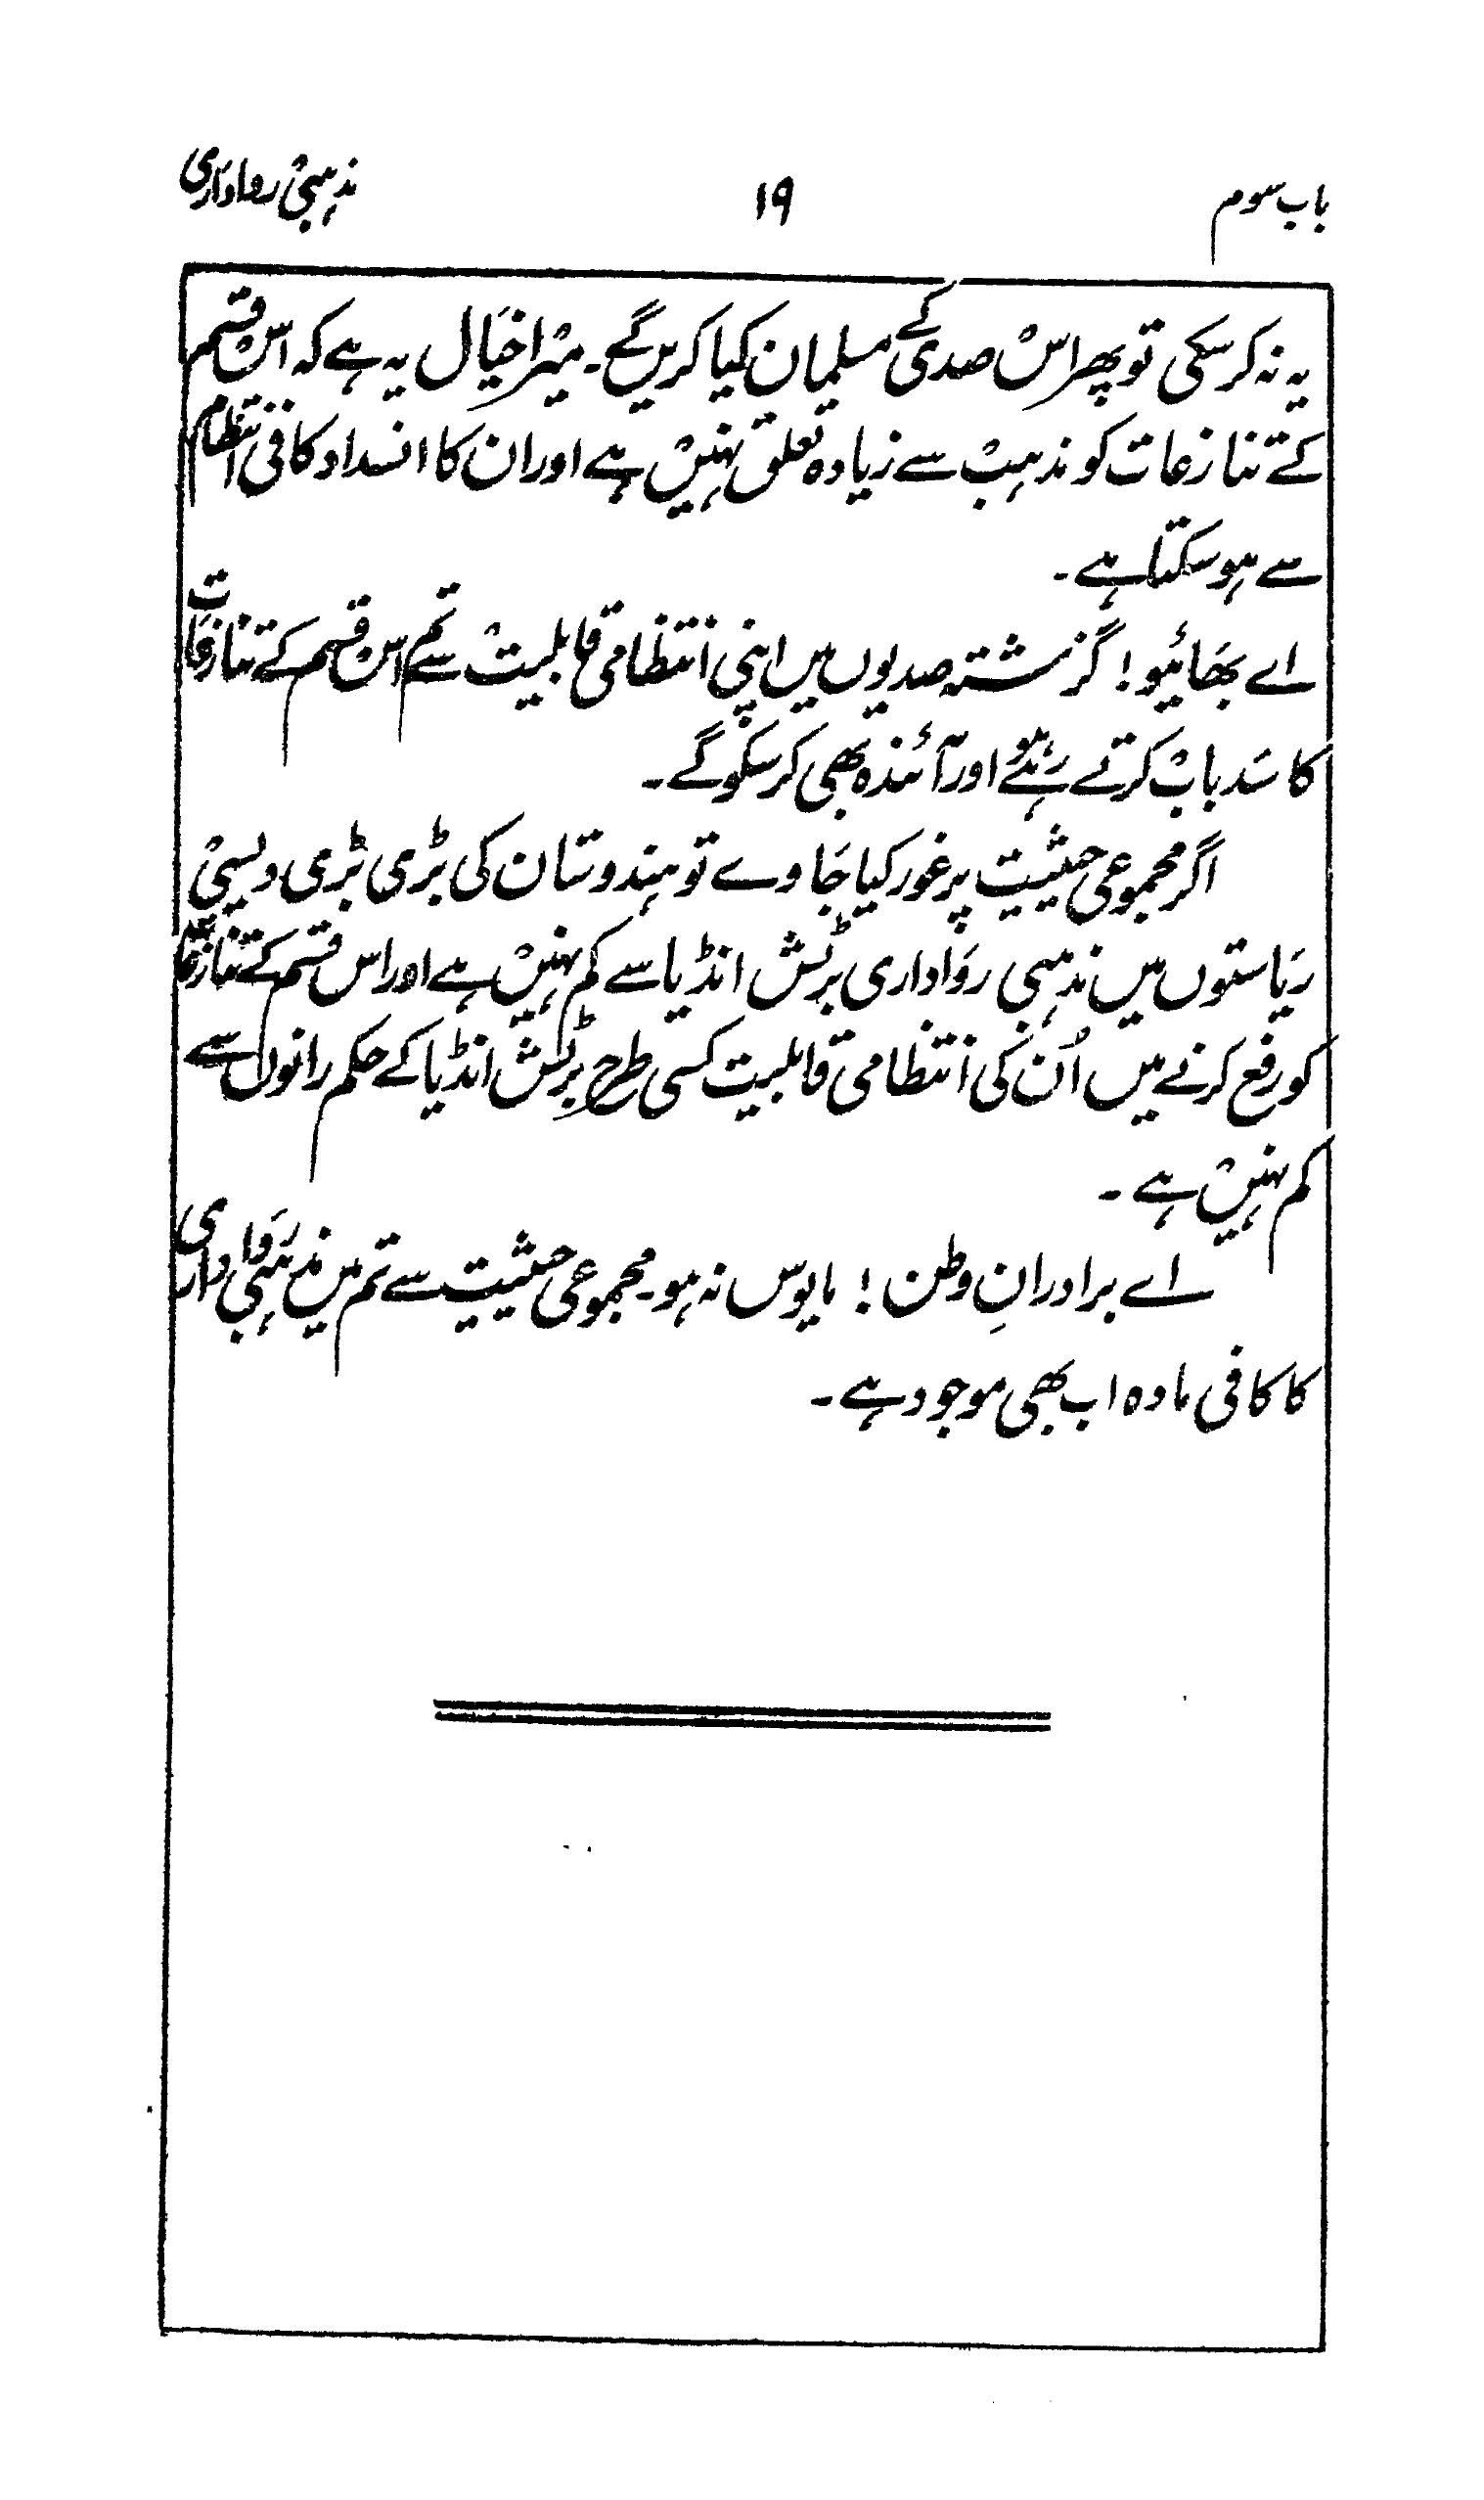 باب سوم ۱۹ مذہبی رواداری
یہ نہ کر سکی تو پھر اس صدی کے مسلمان کیا کریں گے۔ میرا خیال یہ ہے کہ اس قسم
کے تنازعات کو مذہب سے زیادہ تعلق نہیں ہے اور ان کا انسداد کافی انتظام
سے ہو سکتا ہے۔
اے بھائیو! گزشتہ صدیوں میں اپنی انتظامی قابلیت سے تم اس قسم کے تنازعات
کا سد باب کرتے رہے اور آئندہ بھی کر سکو گے۔
اگر مجموعی حیثیت پر غور کیا جاوے تو ہندوستان کی بڑی بڑی دیسی
ریاستوں میں مذہبی رواداری برٹش انڈیا سے کم نہیں ہے اور اس قسم کے تنازعات
کو رفع کرنے میں اُن کی انتظامی قابلیت کسی طرح برٹش انڈیا کے حکم رانوں سے
کم نہیں ہے۔
اے برادرانِ وطن! مایوس نہ ہو۔ مجموعی حیثیت سے تم میں مذہبی رواداری
کا کافی مادہ اب بھی موجود ہے۔